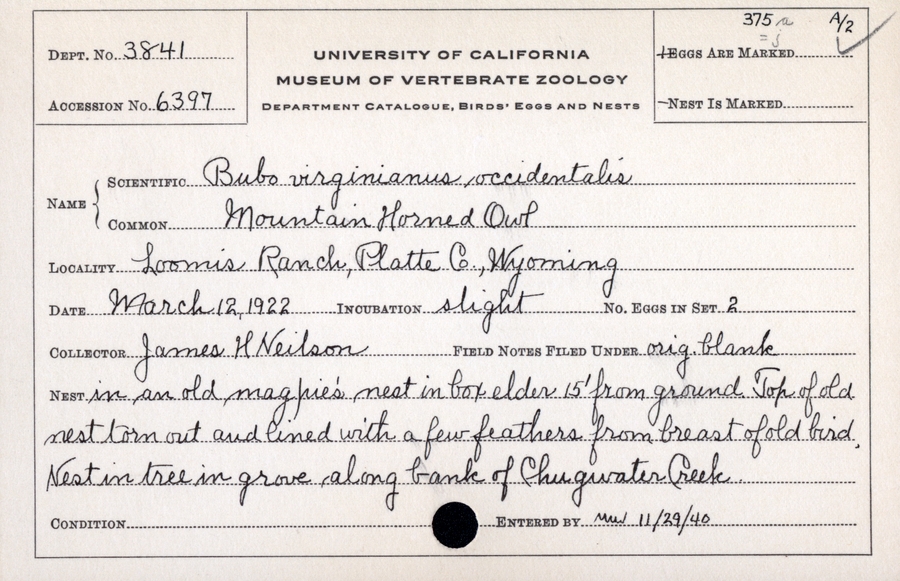 375 a A/2
= j
Dept. No. 3841
UNIVERSITY OF CALIFORNIA
Eggs Are Marked
MUSEUM OF VERTEBRATE ZOOLOGY
Accession No. 6397
Department Catalogue, Birds' Eggs and Nests
Nest Is Marked
Name { Scientific Bubo virginianus occidentalis
Common Mountain Horned Owl
Locality Loomis Ranch, Platte Co., Wyoming
Date March 12, 1922 Incubation slight No. Eggs in Set 2
Collector James H Neilson Field Notes Filed Under orig. blank
Nest in an old magpie's nest in box elder 15' from ground Top of old
nest torn out and lined with a few feathers from breast of old bird.
Nest in tree in grove along bank of Chugwater Creek.
Condition Entered by 11/29/40